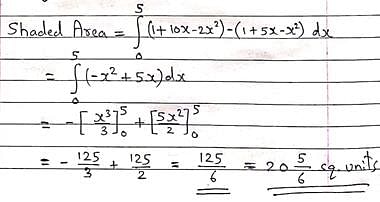 Shaded Area = ∫₀⁵ (1+10x-2x²)-(1+5x-x²) dx
= ∫₀⁵ (-x²+5x)dx
= - [x³/3]₀⁵ + [5x²/2]₀⁵
= - 125/3 + 125/2 = 125/6 = 20 5/6 sq. units